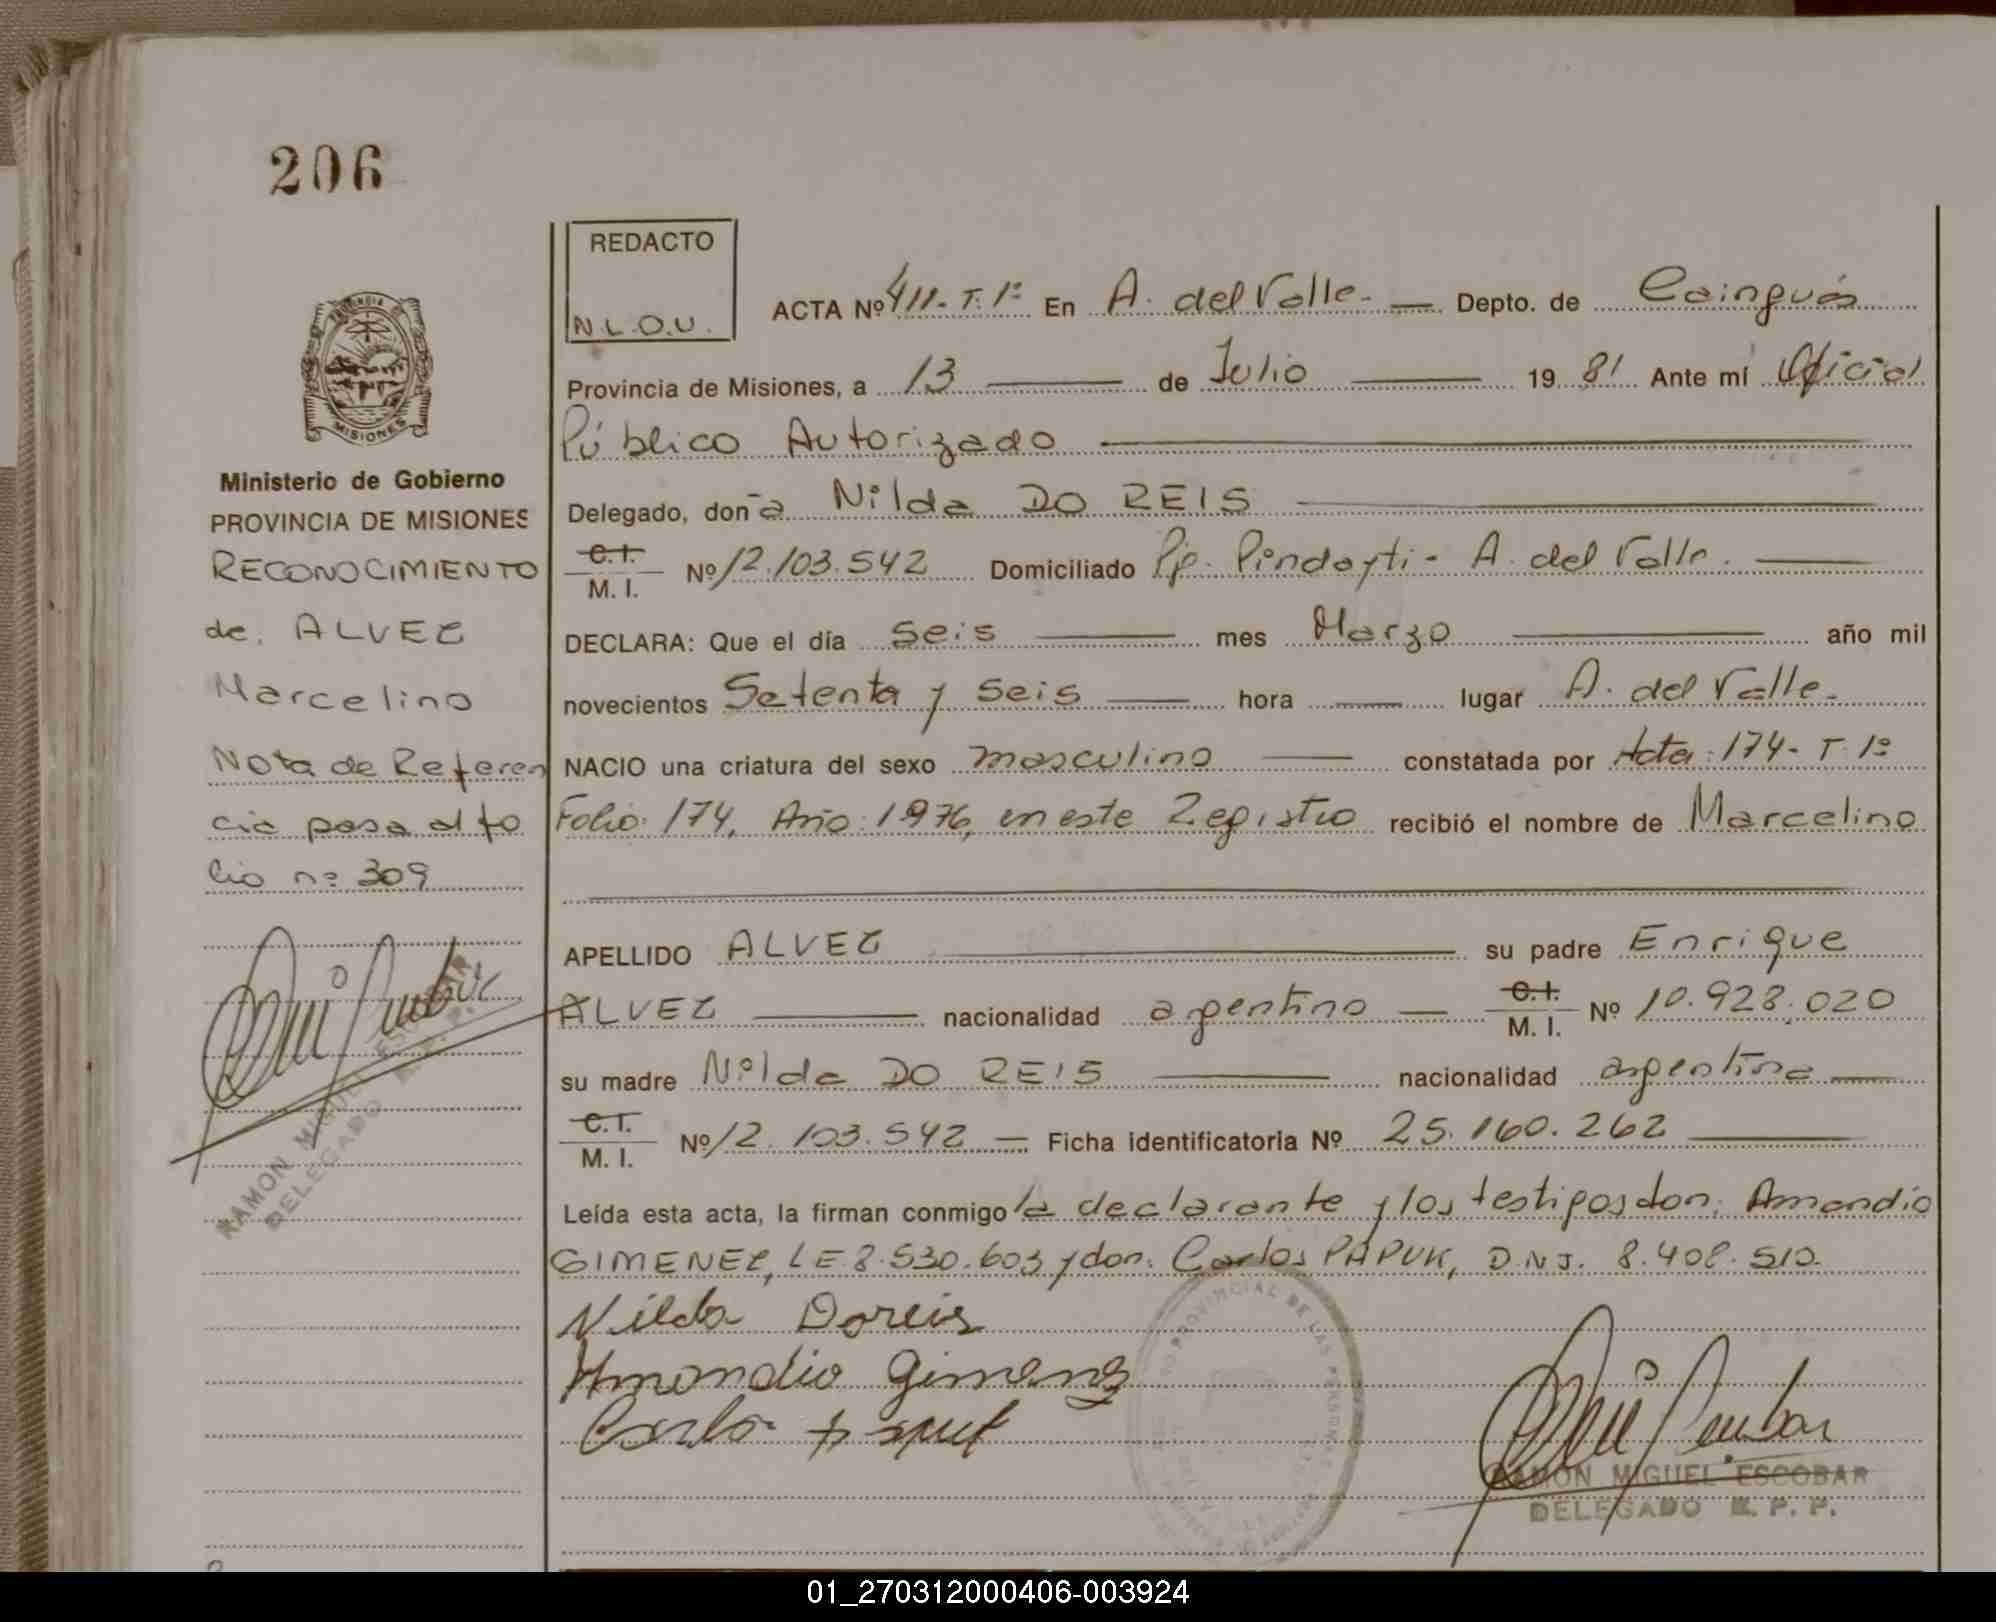 206
REDACTO
N.L.O.U.
ACTA Nº 411- T. 1º En A. del Valle. Depto. de Cainguás
Provincia de Misiones, a 13 de Julio 19 81 Ante mí Oficial
Público Autorizado
Delegado, don a Nilda DO REIS
C.I.
M. I. Nº 12.103.542 Domiciliado Pje. Pindayti - A. del Valle.
DECLARA: Que el día seis mes Marzo año mil
novecientos Setenta y seis hora lugar A. del Valle.
NACIO una criatura del sexo masculino constatada por Acta: 174- T. 1º
Folio: 174, Año: 1976, en este Registro recibió el nombre de Marcelino
APELLIDO ALVEZ su padre Enrique
ALVEZ nacionalidad argentino C.I. M. I. Nº 10.928.020
su madre Nilda DO REIS nacionalidad argentina
C.I.
M. I. Nº 12.103.542 Ficha identificatoria Nº 25.160.262
Leída esta acta, la firman conmigo la declarante y los testigos don: Amandio
GIMENEZ, LE 8.530.603 y don: Carlos PAPUK, D.N.I. 8.408.510.
Nilda Doreis
Amandio Gimenez
RAMON MIGUEL ESCOBAR
DELEGADO R. P. P.
PROVINCIA
MISIONES
Ministerio de Gobierno
PROVINCIA DE MISIONES
RECONOCIMIENTO
de. ALVEZ
Marcelino
Nota de Referen
cia pasa al fo
lio nº 309
RAMON MIGUEL ESCOBAR
DELEGADO R. P. P.
PROVINCIAL DE LAS PERSONAS
01_270312000406-003924